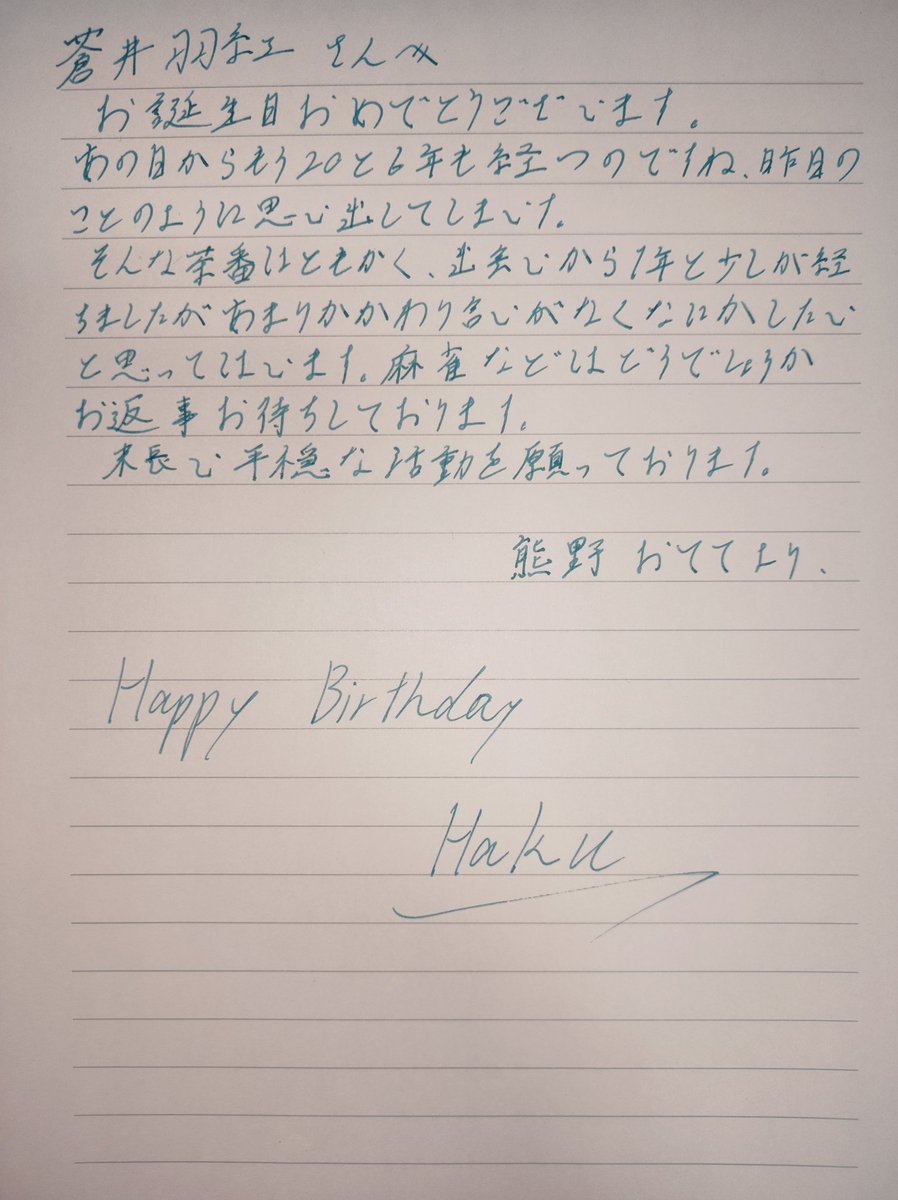 蒼井羽紅 さんへ
お誕生日おめでとうございます。
あの日からもう20と6年も経つのですね、昨日の
ことのように思い出してしまいす。
そんな茶番はともかく、出会いから1年と少しが経
ちましたがあまりかかわり合いがなくなにかしたい
と思ってはいます。麻雀などはどうでしょうか
お返事お待ちしております。
末長い平穏な活動を願っております。
熊野 おててより、
Happy Birthday
Haku